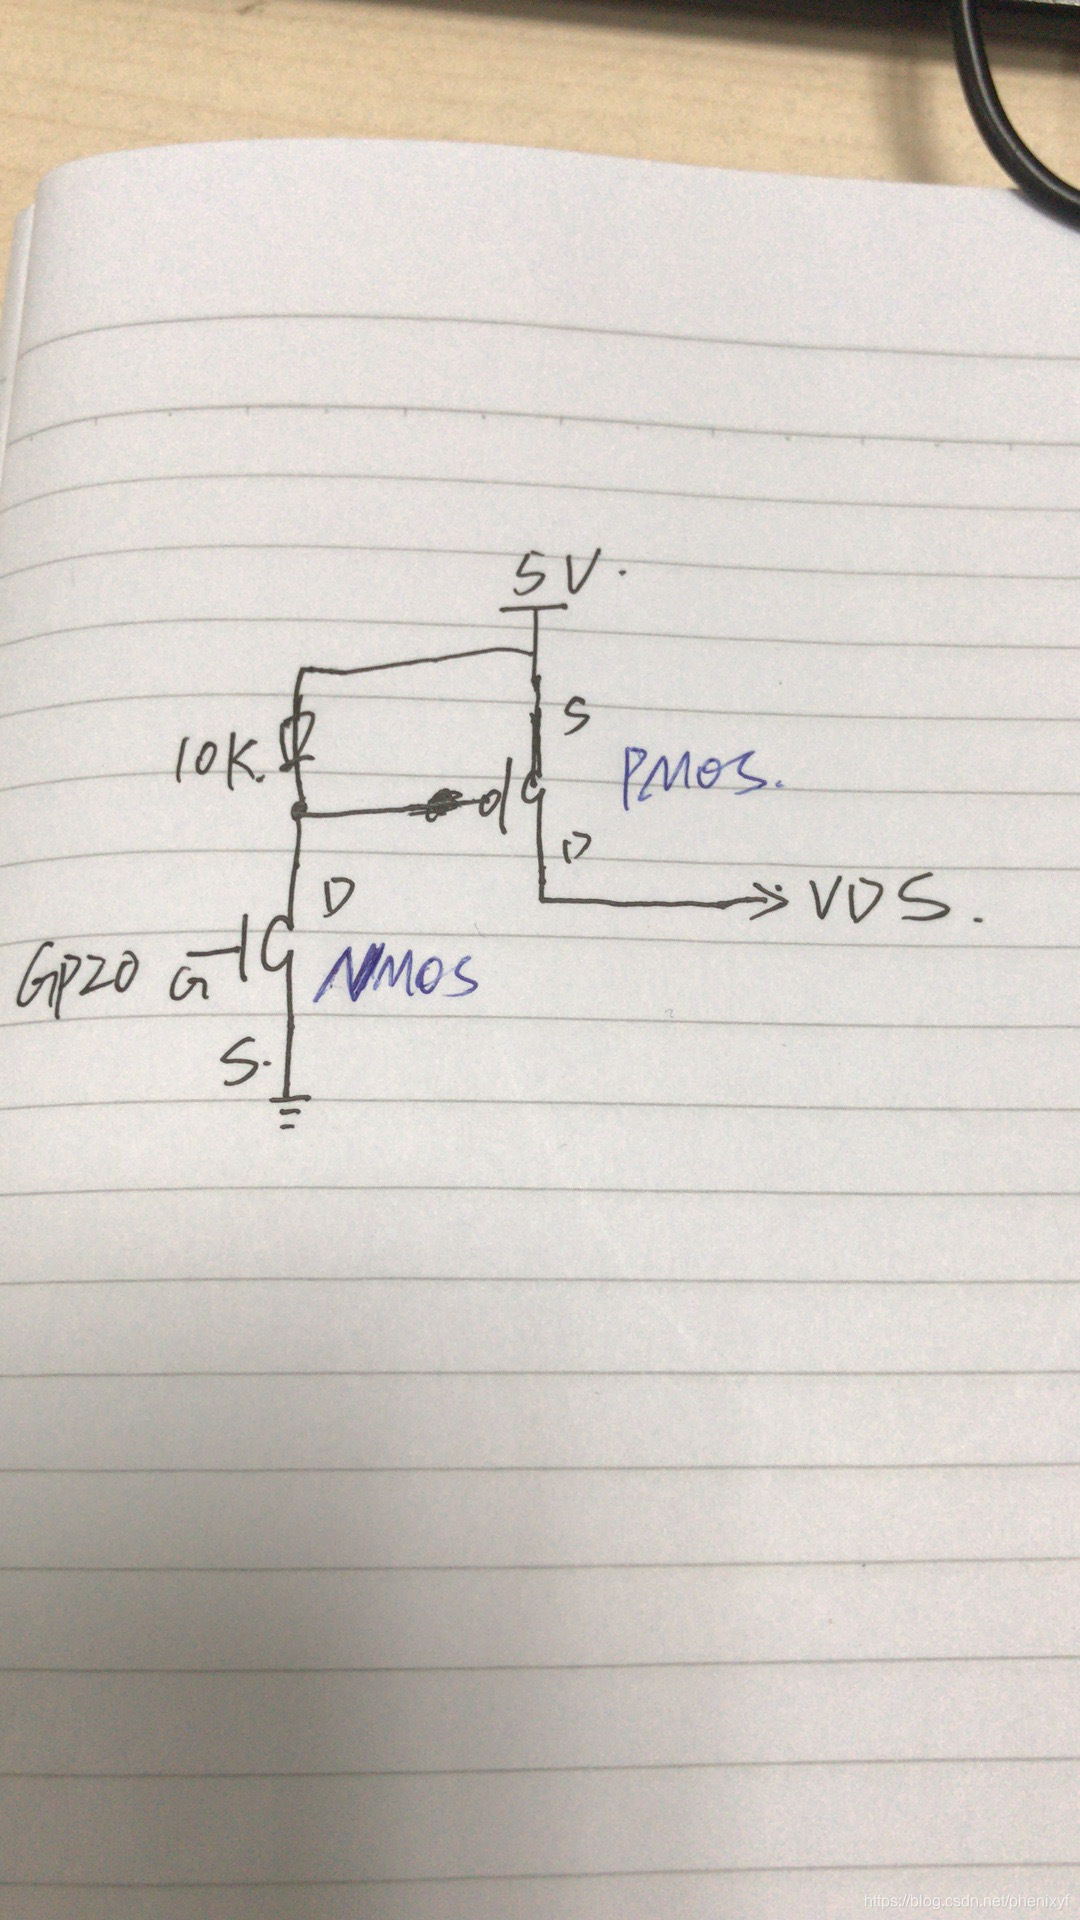 5V.
S
10K.
PMOS.
D
D
VDS.
GPZO G
NMOS
S.
https://blog.csdn.net/phenixyf